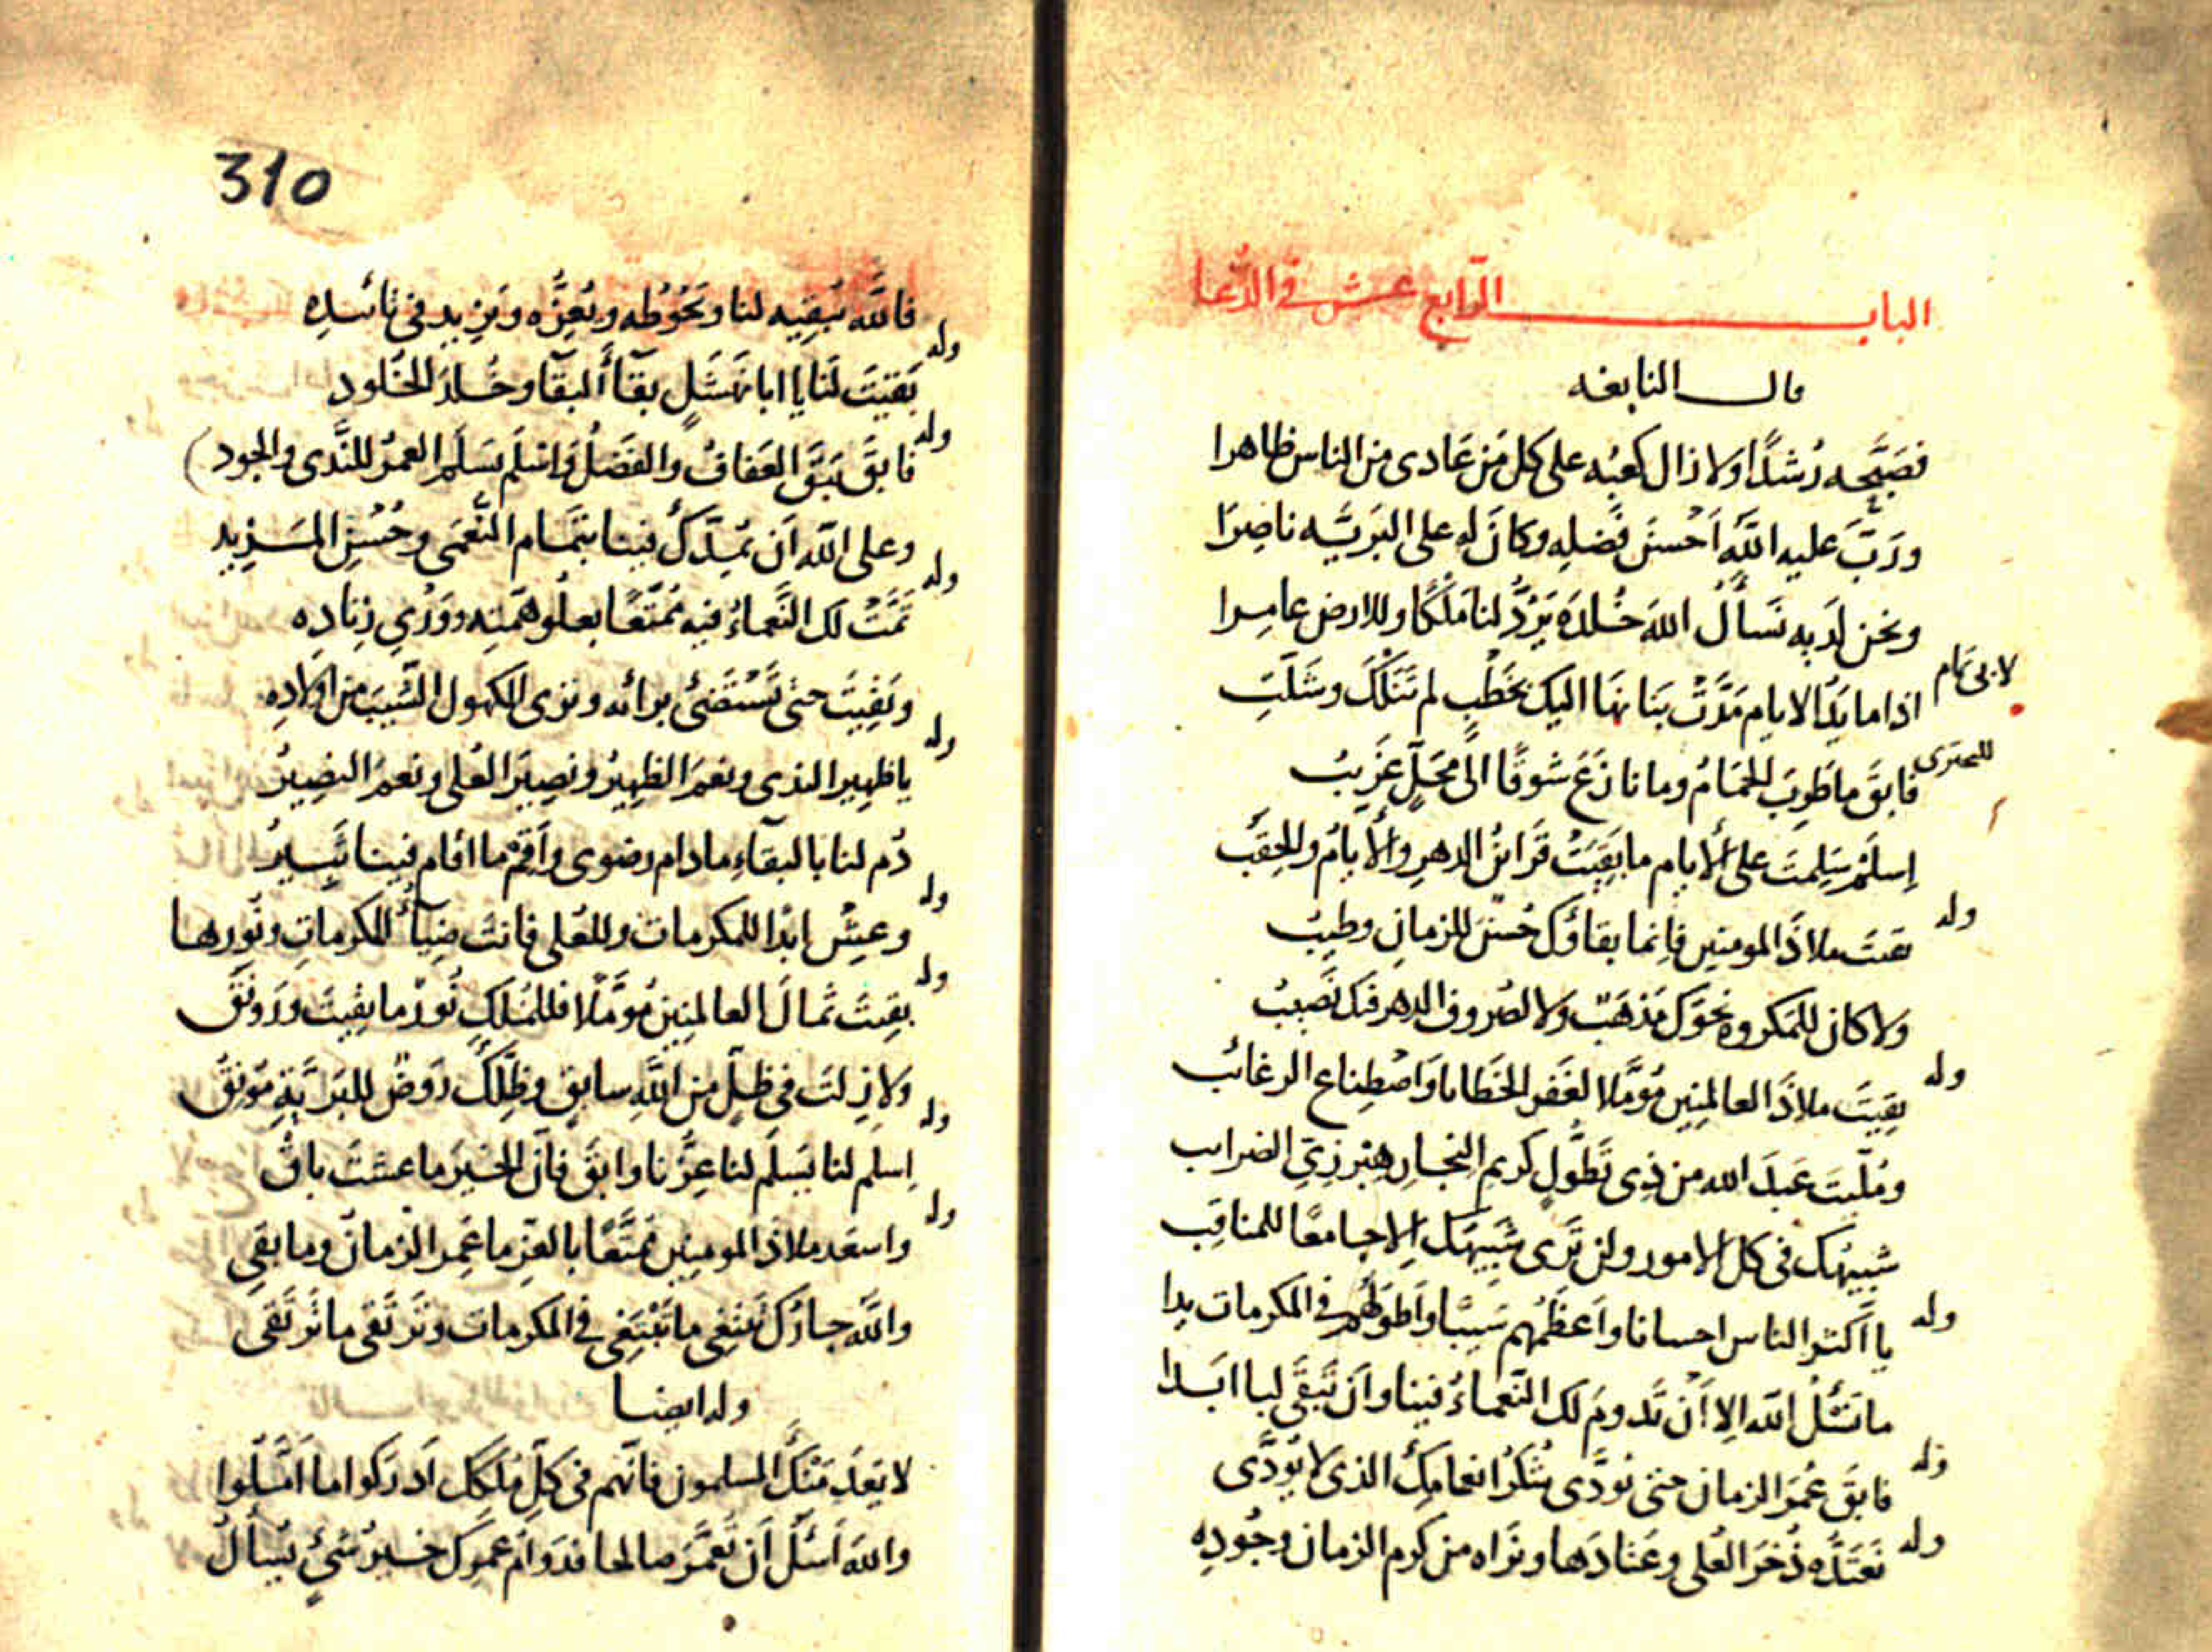 الباب الرابع عشر في الدعا
قال النابغه
فصَبَّحه رُشدًا ولا زال كعبُه على كل مَن عَادى من الناس ظاهرا
ورَبَّ عليه اللهُ أحْسنَ فَضلِه وكانَ له على البَريَّه ناصِرَا
ونحن لدَيه نَسأَلُ اللهَ خُلدَه يَرُدُّ لنا مَلْكًا وللارض عامِرا
لابى تمام
اذا ما يَدُ الايام مَدَّتْ بَنَانهَا اليك بخَطْبٍ لم تَنَلْكَ وشَلَّتِ
للبحترى
فابقَ ما طَرِبَ الحَمَامُ وما نازَعَ شوقًا الى مَحَلٍّ غَرِيبُ
اِسلَمْ سَلِمتَ على الأيام ما بَقِيَتْ قَرَائنُ الدهرِ والأيامُ والحِقَبُ
وله
بقيتَ ملاذَ المومنين فإنما بقاؤك حُسْنٌ للزمانِ وطِيبُ
ولا كان للمكروه نحوَك مَذهَبٌ ولا لصُروف الدهر فيك نَصيبُ
وله
بقِيتَ ملاذَ العالمِينِ مُؤمَّلا لغَفرِ الخَطايا واصْطِناع الرغائب
ومُلّيتَ عبدَ الله من ذِى تَطَوُّلٍ كريم النجارِ هِبْرِزِيّ الضرايب
شبيهُك فى كل الامور ولن تَرَى شَبِيهَك إلا جامعًا للمناقِب
وله
يا أكثرَ الناس احسانا وأعظَمُهم سَيبًا وأطوَلُهم فى المكرمات يدا
ما نَسْئَلُ الله إلا أنْ تَدومَ لك النَّعماءُ فينا وأن تَبقَى لنا ابَدا
وله
فابقَ عُمرَ الزمان حتى نودَّى شُكرَ انعامِكَ الذى لا يُودَّى
وله
نَعتَدُّه ذُخرَ العُلى وعَتادَها ونَراه من كرم الزمان وجُودِه
310
فاللهُ يُبقِيه لنا ويَحُوطُه ويُعِزُّه ويَزِيد فى تائيدِه
وله
بَقيتَ لَنا يا ابا نَهشَلٍ بقآءَ البقآ وخُلدَ الخُلودِ
وله
فابقَ يَبقَ العَفافُ والفَضلُ وَاسْلَم يَسلَمِ العمرُ للنَّدى والجود
وعلى الله أن يُمِدَّكَ فينا بتَمام النُّعمَى وحُسْنِ المَزِيد
وله
تَمَّتْ لك النَّعماءُ فيه مُمَتَّعًا بعلُوِ همَّتِه ووَرْيِ زِنادِه
وبَقِيتَ حتى تَسْتَضئَ برائه وترى الكهولَ الشِيبَ من اولادِه
وله
يا ظهِيرَ الندى ونعمَ الظهِيرُ ونصِيرَ العُلى ونعمَ النصِيرُ
دُم لنا بالبقآءِ ما دام رضوى وأقِمْ ما اقام فِينا ثَبِيرُ
وله
وعِشْ ابدًا للمكرمات وللعُلى فانت ضِيآءُ المكرماتِ ونُورها
وله
بقِيتَ ثمالَ العالمِينِ مُؤمَّلًا فللمُلكِ نُورٌ ما بقِيتَ ورَونَقُ
ولا زِلتَ فى ظِلٍّ من اللَّهِ سابقٍ وظِلُّكَ رَوضٌ للبَرِيَّةِ مُونِقُ
وله
اِسلم لنا يَسلَم لنا عِزُّنا وابقَ فانّ الخيرَ ما عشتَ باقُ
وله
واسعَد ملاذَ المومنِين مُمَتَّعًا بالعِزِّ ما عَمِرَ الزمانُ وما بقِى
واللهُ جارُكَ تَبتغِى ما تَبْتَغِى فى المكرمات وتَرتَقى ما تَرتَقى
وله ايضا
لا يَعدَمَنْكَ المسلمون فانّهم فى كلّ مُلكِكَ ادرَكوا ما أمَّلُوا
واللهَ أسئَلُ أن تُعمَّرَ صالحًا فدَوامُ عُمرِكَ خيرُ شَيٍ يُسأَلُ